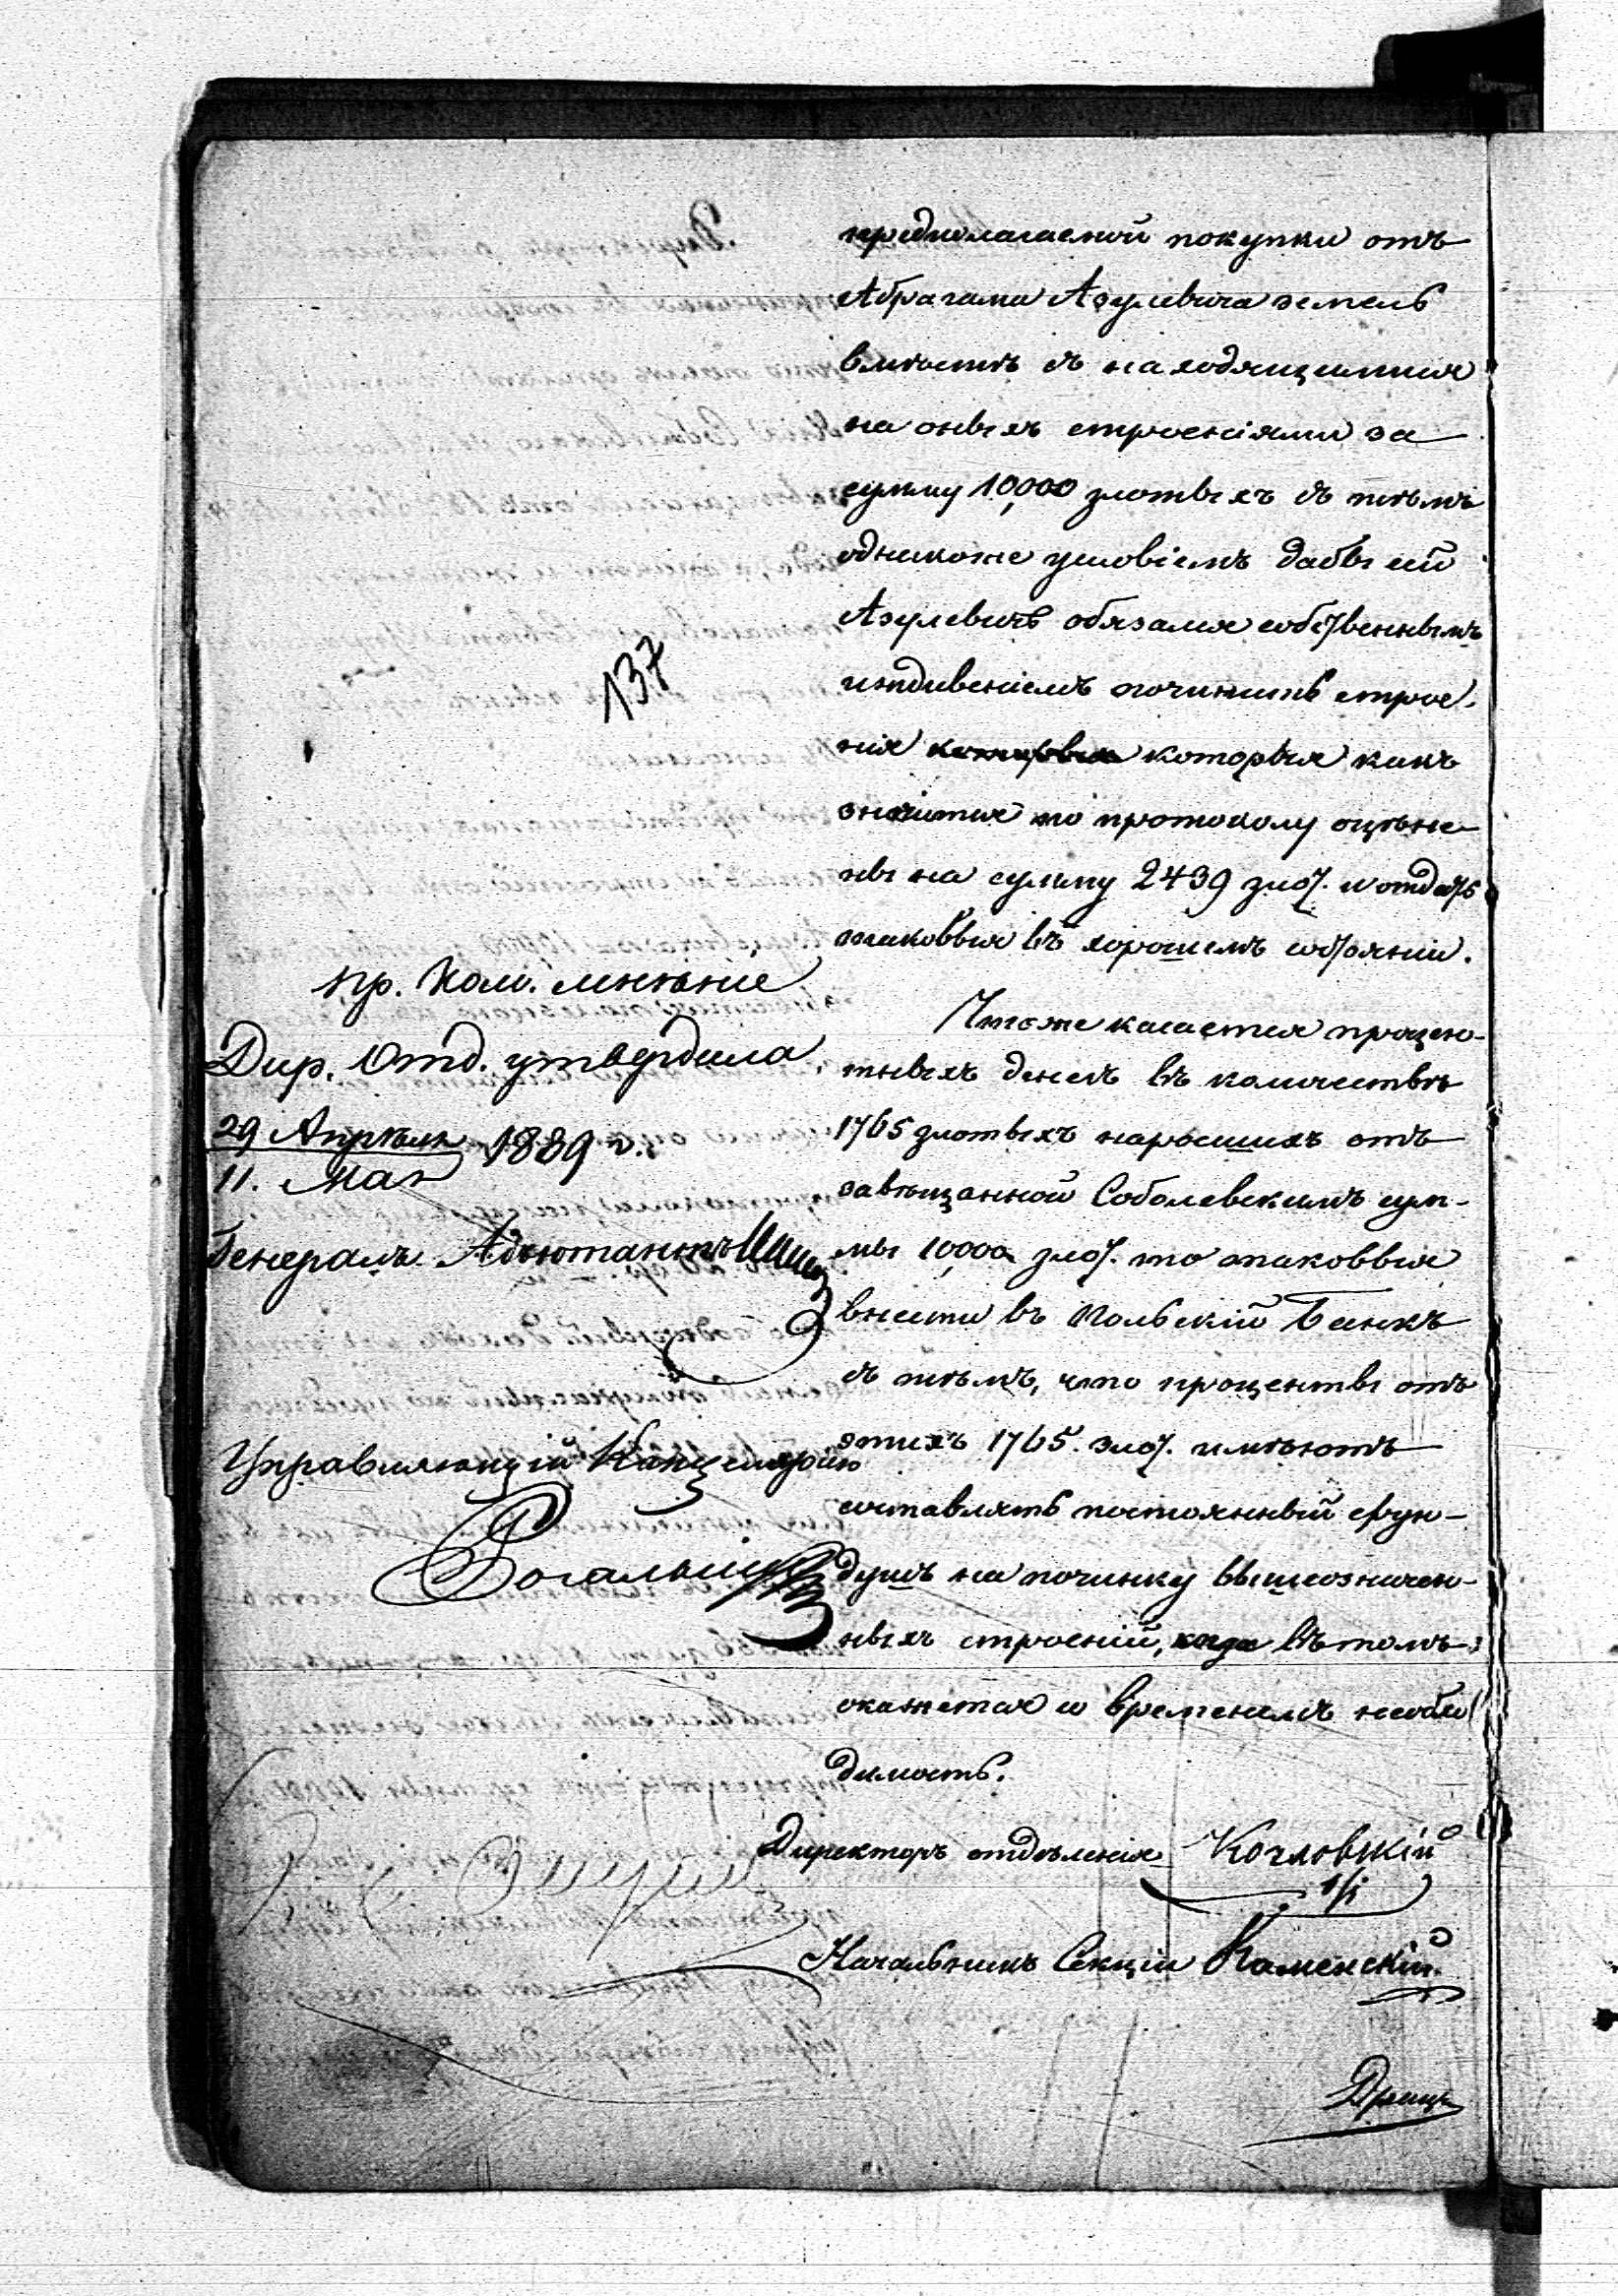 предполагаемой покупки отъ
Абрагама Азулевича земель
вмѣстѣ съ находящимися
на оныхъ строеніями за
сумму 10,000 злотыхъ съ тѣмъ
однакоже условіемъ дабы сей
Азулевичъ обязался собственнымъ
иждивеніемъ починить строе-
нія которыя какъ
значится по протоколу оцѣне-
ны на сумму 2439 злот. и отдать
таковыя въ хорошемъ состояніи.
Чтоже касается процен-
тныхъ денегъ въ количествѣ
1765 злотыхъ наросшихъ отъ
завѣщанной Соболевскимъ сум-
мы 10,000 злот. то таковыя
внести въ Польскій Банкъ
съ тѣмъ, что проценты отъ
этихъ 1765. злот. имѣютъ
составлять постоянный фун-
душъ на починку вышеозначен-
ныхъ строеній, когда въ томъ
окажется со временемъ необхо
димость.
Директоръ отдѣленія Козловскій
Начальникъ Секціи Каменскій
137
Пр. Ком. мнѣніе
Дир. Отд. утвердила
29 Апрѣля
11. Мая 1839 г.
Генералъ Адъютантъ
Управляющій Канцеляріею